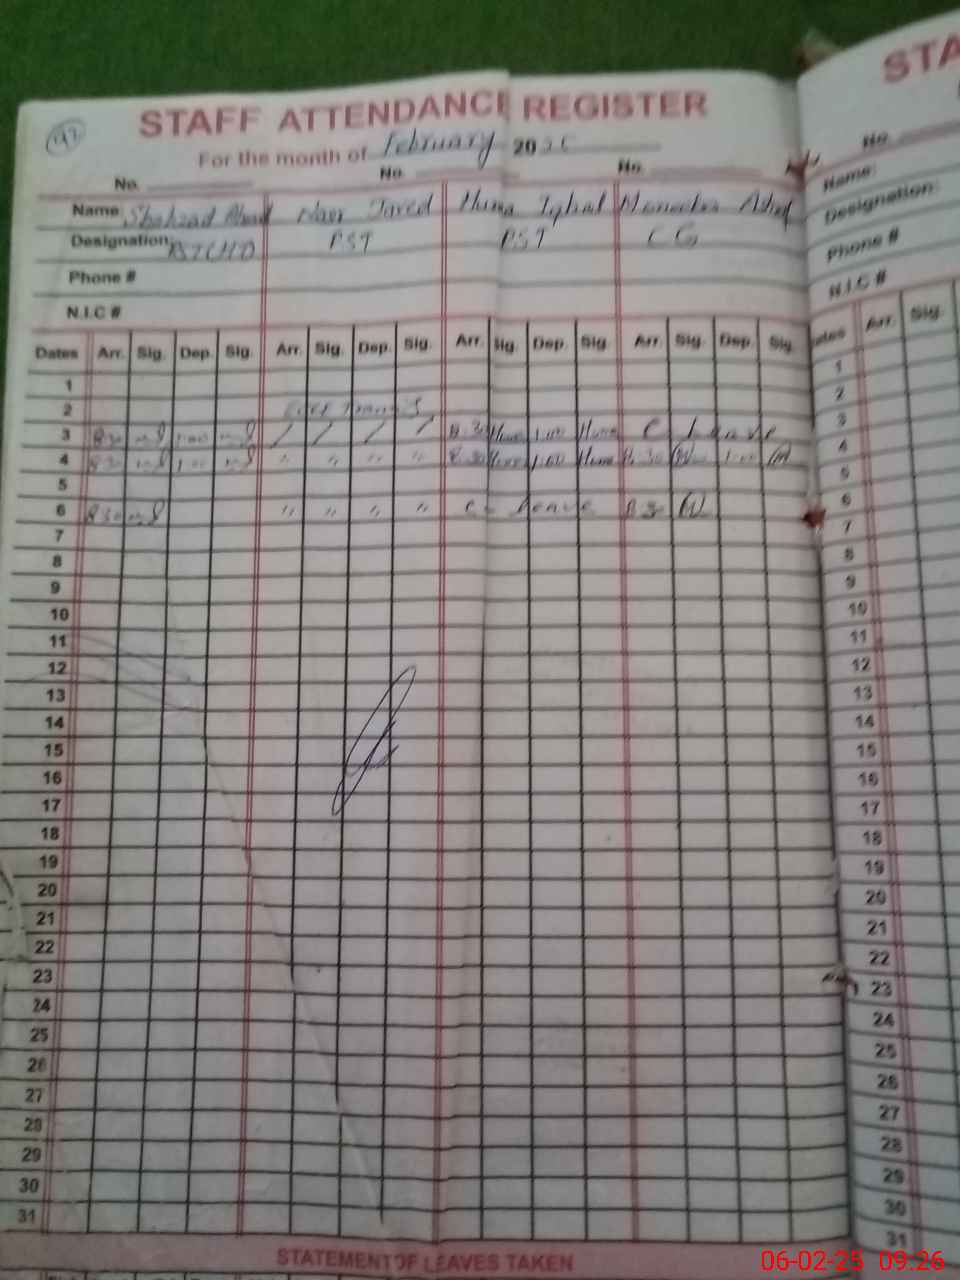 STAFF ATTENDANCE REGISTER
For the month of February 20
No. No. No.
Name: Shahzad Nasr Javed Huma Iqbal
Designation: PST PST CG
Phone #
N.I.C #
Dates Arr. Sig. Dep. Sig. Arr. Sig. Dep. Sig. Arr. Sig. Dep. Sig. Arr. Sig. Dep. Sig.
1
2
3 8.30 1.00 / / / / 8.30 Huma 1.00 Huma C Leave
4 8.30 1.00 " " " " 8.30 Huma 1.00 Huma 8.30
5
6 8.30 " " " " C- Leave
7
8
9
10
11
12
13
14
15
16
17
18
19
20
21
22
23
24
25
26
27
28
29
30
31
STATEMENT OF LEAVES TAKEN
STA
No.
Name:
Designation:
Phone #
N.I.C #
Dates Arr. Sig.
1
2
3
4
5
6
7
8
9
10
11
12
13
14
15
16
17
18
19
20
21
22
23
24
25
26
27
28
29
30
31
06-02-25 09:26